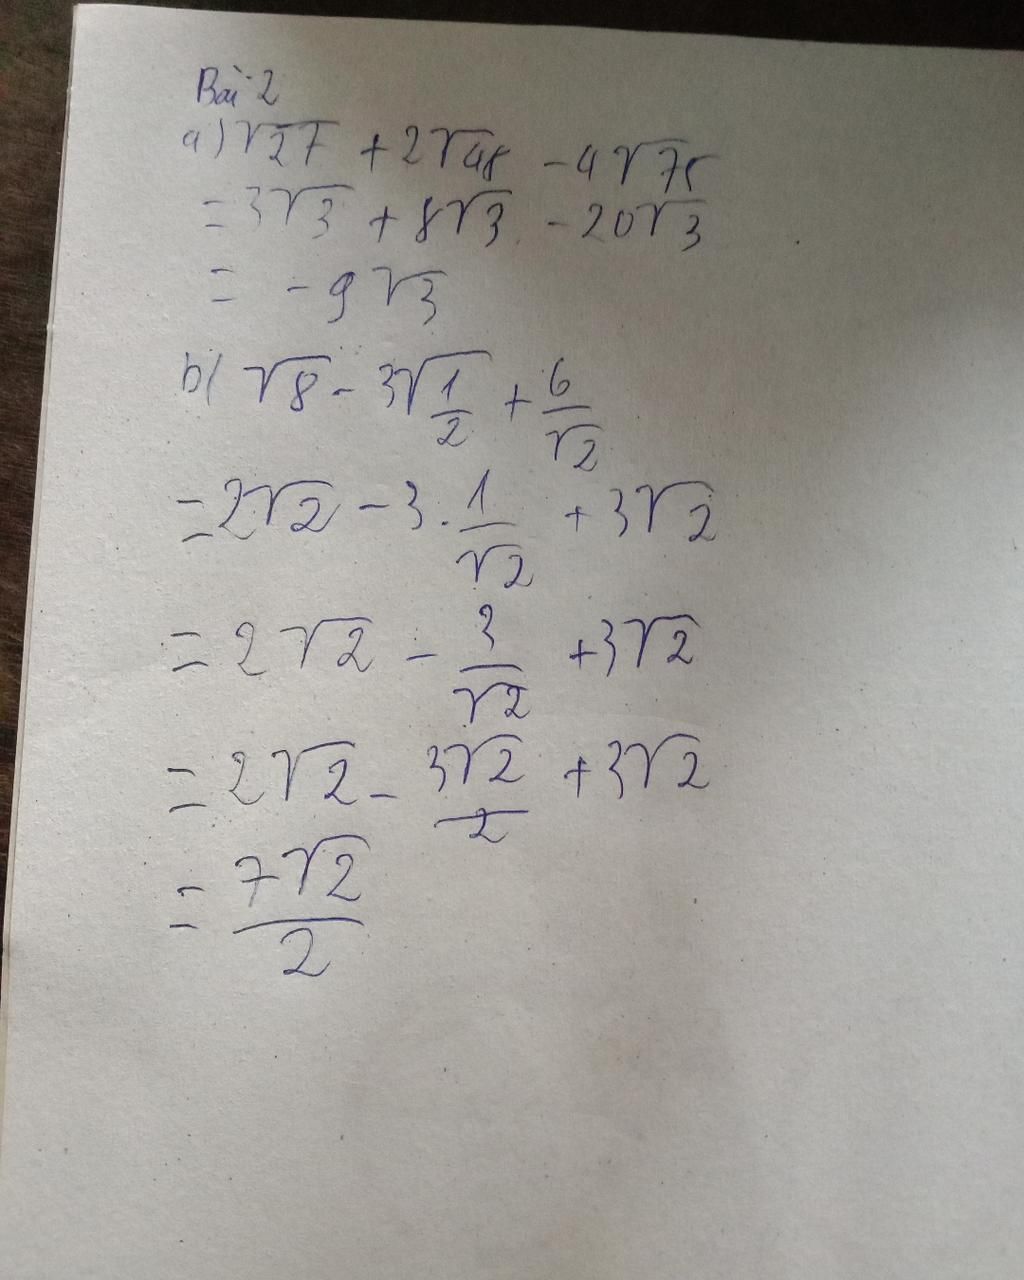 Bài 2
a) √27 + 2√48 - 4√75
= 3√3 + 8√3 - 20√3
= - 9√3
b) √8 - 3√(1/2) + 6/√2
= 2√2 - 3 . 1/√2 + 3√2
= 2√2 - 3/√2 + 3√2
= 2√2 - 3√2/2 + 3√2
= 7√2/2